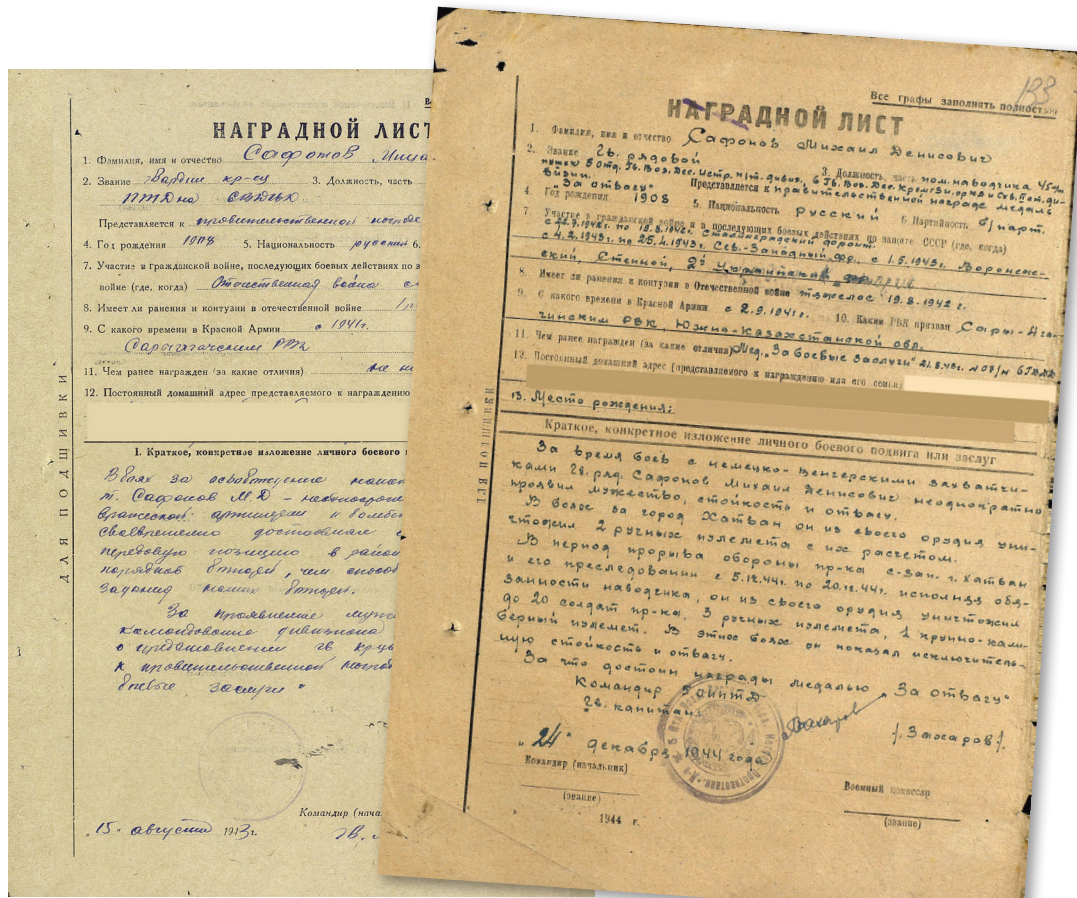 НАГРАДНОЙ ЛИСТ
1. Фамилия, имя и отчество Сафонов Миха
2. Звание Гвардии кр-ец 3. Должность, часть
ПТДна
Представляется к правительственной награде
4. Год рождения 1908 5. Национальность русский 6.
7. Участие в гражданской войне, последующих боевых действиях по з
войне (где, когда) Отечественная война с
8. Имеет ли ранения и контузии в отечественной войне
9. С какого времени в Красной Армии с 1941г.
Сарыагачским РВК
11. Чем ранее награжден (за какие отличия) не н
12. Постоянный домашний адрес представляемого к награждению
I. Краткое, конкретное изложение личного боевого
В боях за освобождение нашей
т. Сафонов М.Д - неоднократно
вражеской артиллерии и бомбеж
своевременно доставлял
передовую позицию в район
порядков батареи, чем способ
задания наших батарей.
За проявление муж
командование дивизиона
о представлении гв кр-ца
к правительственной награде
боевые заслуги"
Командир (нача
"15" августа 1943г.
ДЛЯ ПОДШИВКИ
133
Все графы заполнять полностью
НАГРАДНОЙ ЛИСТ
1. Фамилия, имя и отчество Сафонов Михаил Денисович
2. Звание Гв. рядовой 3. Должность, часть пом. наводчика 45 м/м
пушек 5 Отд. Гв. Воз. Дес. Истр. п/т. дивиз. 6 Гв. Воз. Дес. Крем-Зн. орд. ка и Сув. Пех. ди-
визии. Представляется к правительственной награде медаль
"За отвагу"
4. Год рождения 1908 5. Национальность русский 6. Партийность б/парт.
7. Участие в гражданской войне и в последующих боевых действиях по защите СССР (где, когда)
с 22.7.1942г. по 19.8.1942г. Сталинградский фронт.
с 4.2.1943г. по 25.4.1943г. Сев.-Западный фр., с 1.5.1943г. Воронеж-
ский, Степной, 2й Украинский
8. Имеет ли ранения и контузии в Отечественной войне тяжелое 19.8.1942 г.
9. С какого времени в Красной Армии с 2.9.1941г. 10. Каким РВК призван Сары-Ага-
чинским РВК, Южно-Казахстанской обл.
11. Чем ранее награжден (за какие отличия) Мед. "За боевые заслуги" 21.8.43г. № 07/н 6 ГвВДД
12. Постоянный домашний адрес (представляемого к награждению или его семьи)
13. Место рождения:
Краткое, конкретное изложение личного боевого подвига или заслуг
За время боев с немецко-венгерскими захватчи-
ками Гв. ряд. Сафонов Михаил Денисович неоднократно
проявил мужество, стойкость и отвагу.
В боях за город Хатван он из своего орудия уни-
чтожил 2 ручных пулемета с их расчетом.
В период прорыва обороны пр-ка с-зап. г. Хатван
и его преследовании с 5.12.44г. по 20.12.44г. исполняя обя-
занности наводчика, он из своего орудия уничтожил
до 20 солдат пр-ка, 3 ручных пулемета, 1 крупно-кали-
берный пулемет. В этих боях он показал исключитель-
ную стойкость и отвагу.
За что достоин награды медалью "За отвагу"
Командир 5 ОИПТД
Гв. капитан:
/. Захаров /.
"24" декабря 1944 года
Командир (начальник)
(звание)
Военный комиссар
(звание)
1944 г.
ДЛЯ ПОДШИВКИ